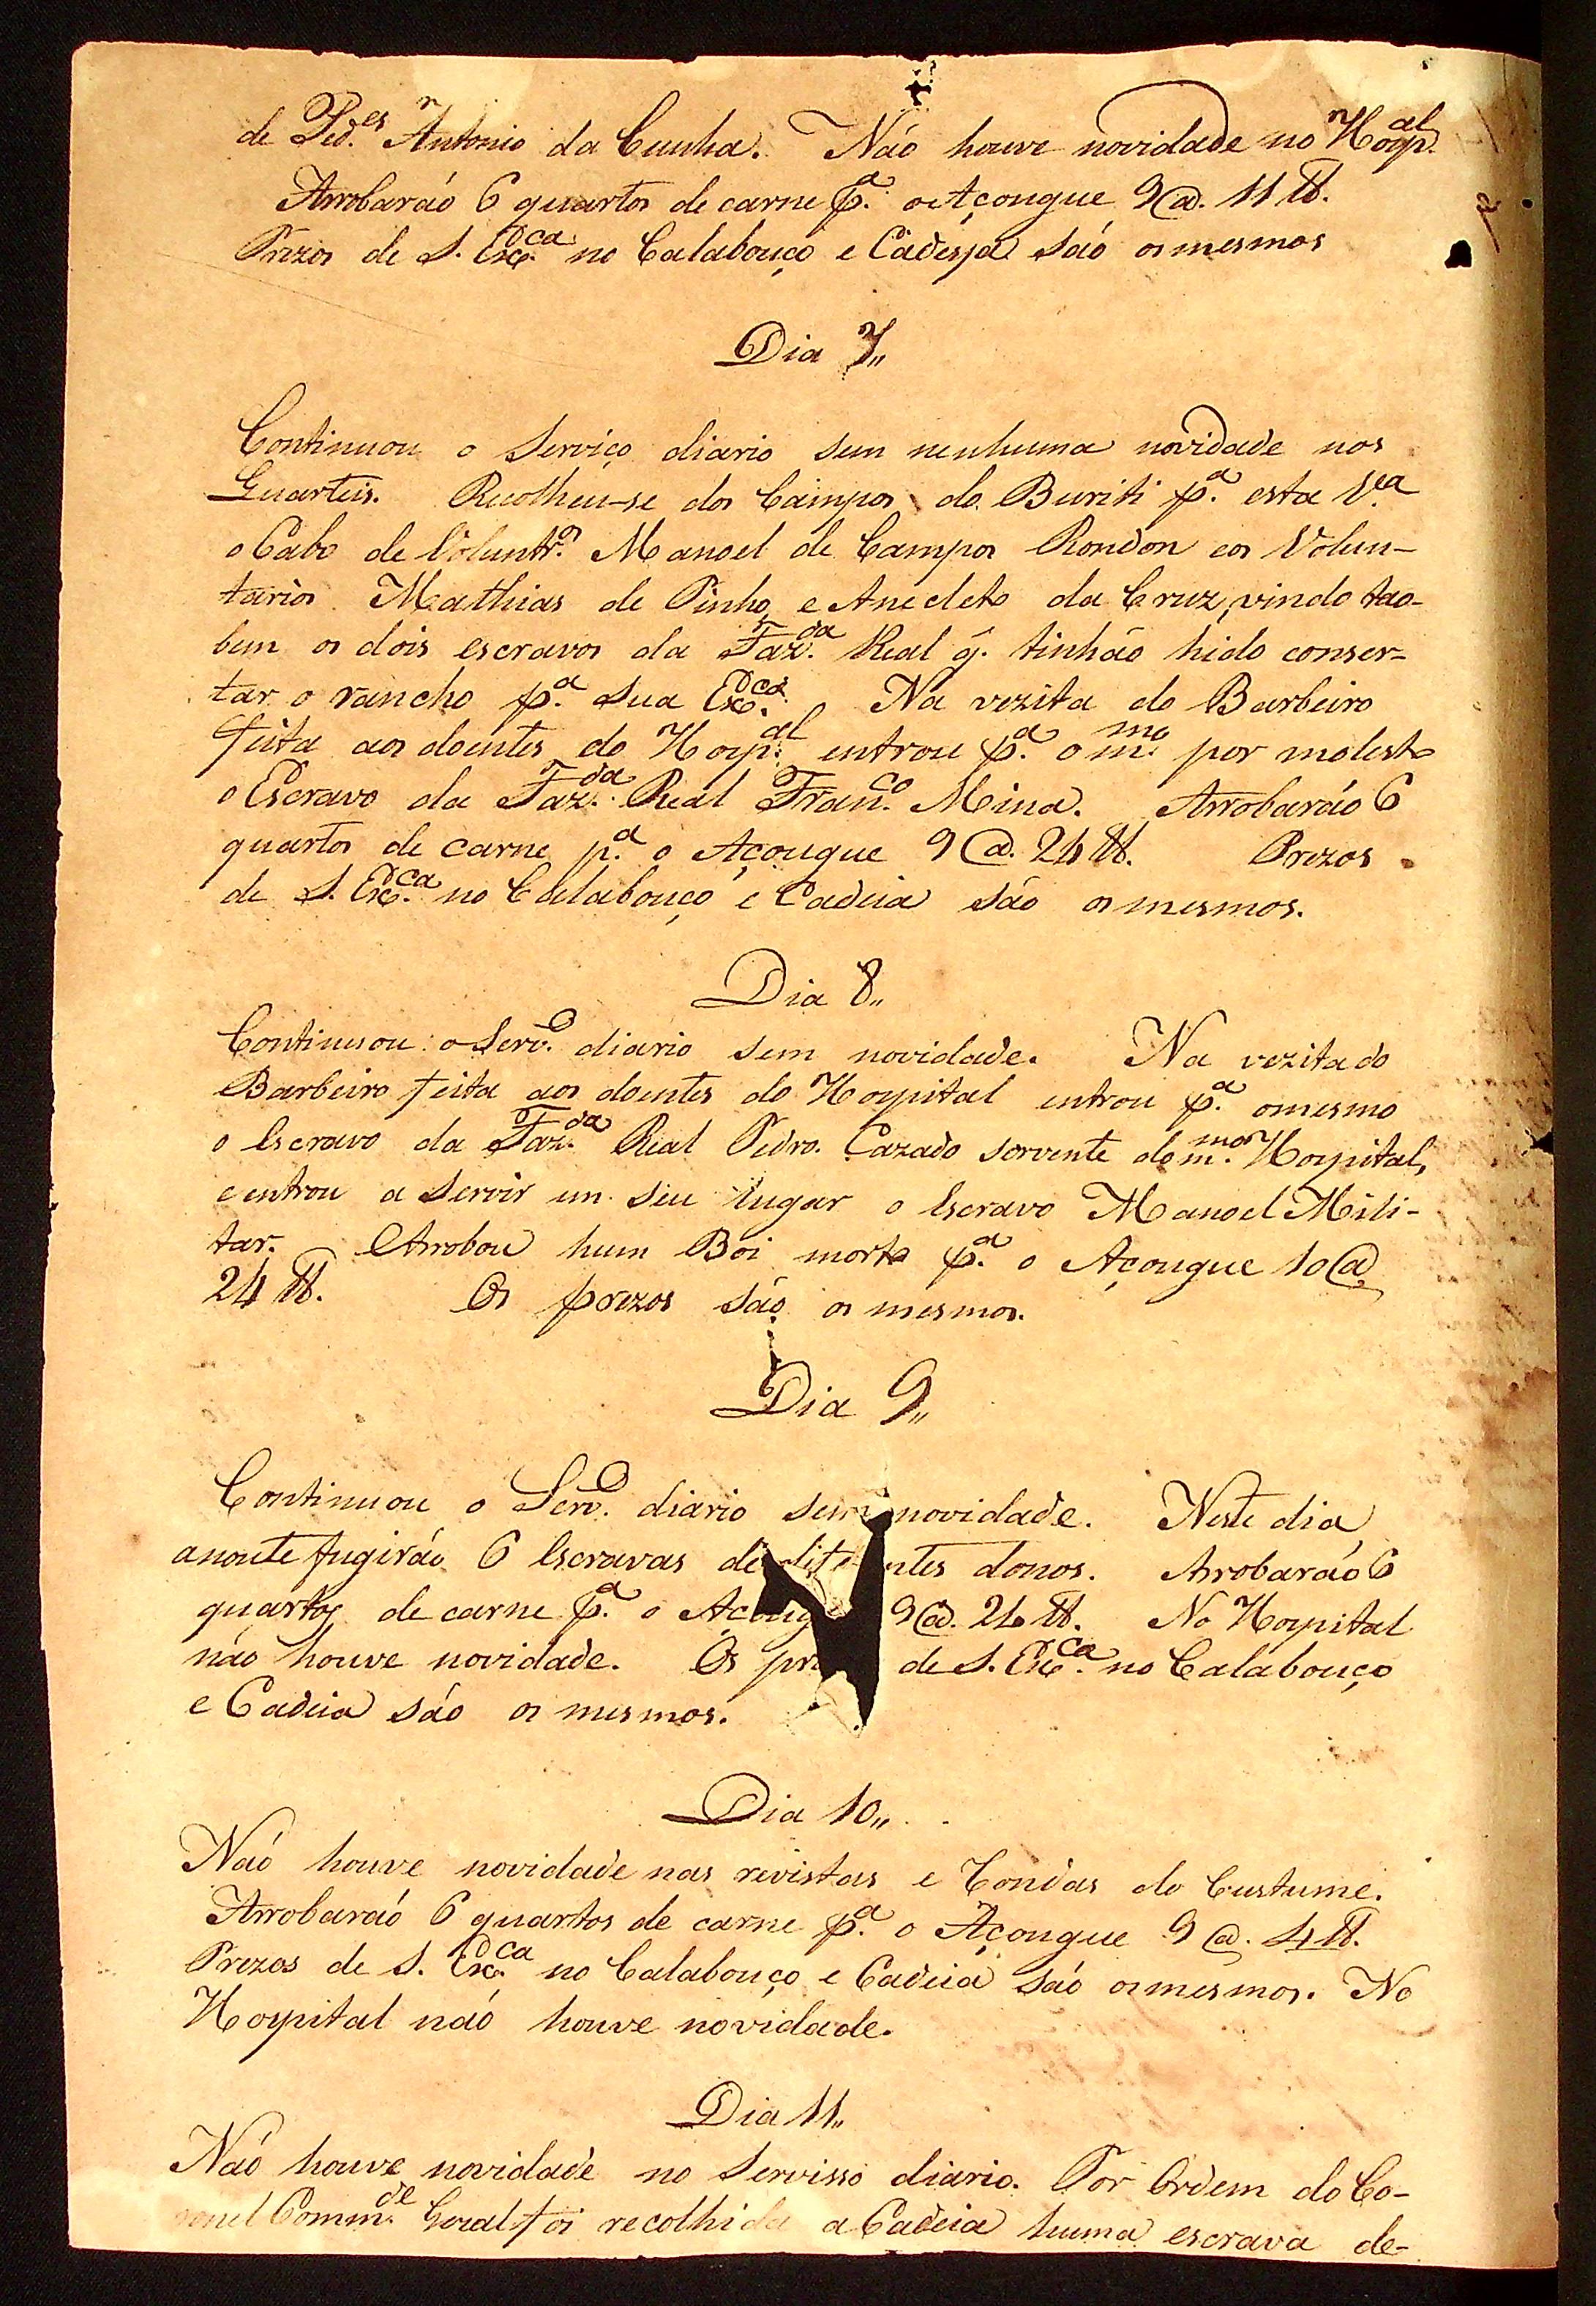 de Ped.es Antonio da Cunha. Não houve novidade no Hosp.al
Arrobarão 6 quartos de carne p.a o Açougue 9@. 11 ℔.
Prezos de S. Exc.ca no Calabouço e Cadeya são os mesmos
Dia 7,,
Continuou o Serviço diario sem nenhuma novidade nos
Quarteis. Recolheu-se dos Campos do Buriti p.a esta V.ea
o Cabo de Voluntr.os Manoel de Campos Rondon e os Volun-
tarios Mathias de Pinho, e Anecleto da Cruz, vindo tao-
bem os dois escravos da Faz.da Real q̃. tinhão hido conser-
tar o rancho p.a Sua Exc.ca Na vezita do Barbeiro
feita aos doentes do Hosp.al entrou p.a o m.mo por molesto
o Escravo da Faz.da Real Fran.co Mina. Arrobarão 6
quartos de carne p.a o Açougue 9@. 24 ℔. Prezos
de S. Exc.ca no Calabouço e Cadeia são os mesmos.
Dia 8,,
Continuou o Serv.o diario sem novidade. Na vezita do
Barbeiro feita aos doentes do Hospital entrou p.a o mesmo
o escravo da Faz.da Real Pedro Cazado servente do m.mo Hospital,
e entrou a servir em seu lugar o escravo Manoel Mili-
tar. Arrobou hum Boi morto p.a o Açougue 10@
24 ℔. Os prezos são os mesmos.
Dia 9,,
Continuou o Serv.o diario sem novidade. Neste dia
a noute fugirão 6 escravas de dife ntes donos. Arrobarão 6
quartos de carne p.a o Açoug 9@. 24 ℔. No Hospital
não houve novidade. Os pr de S. Exc.ca no Calabouço
e Cadeia são os mesmos.
Dia 10,,
Não houve novidade nas revistas e Rondas do Custume.
Arrobarão 6 quartos de carne p.a o Açougue 9@. 4 ℔.
Prezos de S. Exc.ca no Calabouço e Cadeia são os mesmos. No
Hospital não houve novidade.
Dia 11,,
Não houve novidade no Servisso diario. Por Ordem do Co-
ronel Comm.de Geral foi recolhida a Cadeia huma escrava de-